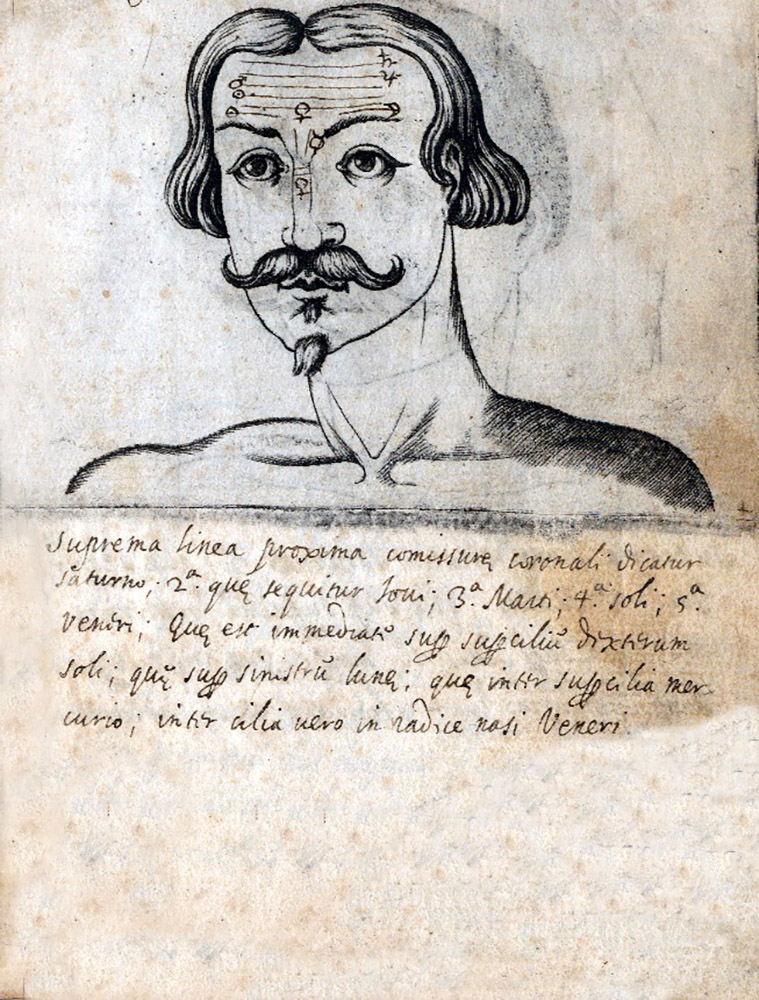 suprema linea proxima comissurę coronali dicatur
saturno; 2ª. quę sequitur Ioui; 3ª Marti; 4ª. soli; 5ª.
veneri; Quę est immediatè suꝑ suꝑciliū dexterum
soli; quę suꝑ sinistrū lunę; quę inter suꝑcilia mer-
curio; inter cilia uero in radice nasi Veneri.